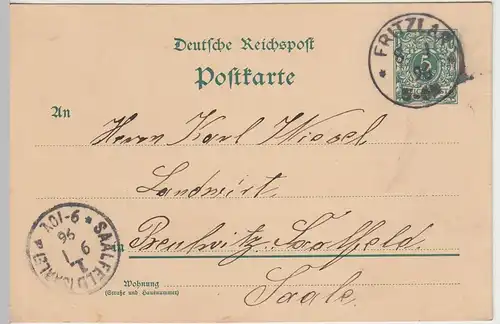 Deutsche Reichspost
Postkarte
FRITZLAR
8 1
96
5
An
Herrn Karl Wiesel
Landwirt
in Saalfeld
Wohnung
(Straße und Hausnummer)
Saale.
SAALFELD (SAALE)
9 1
96
9-10V